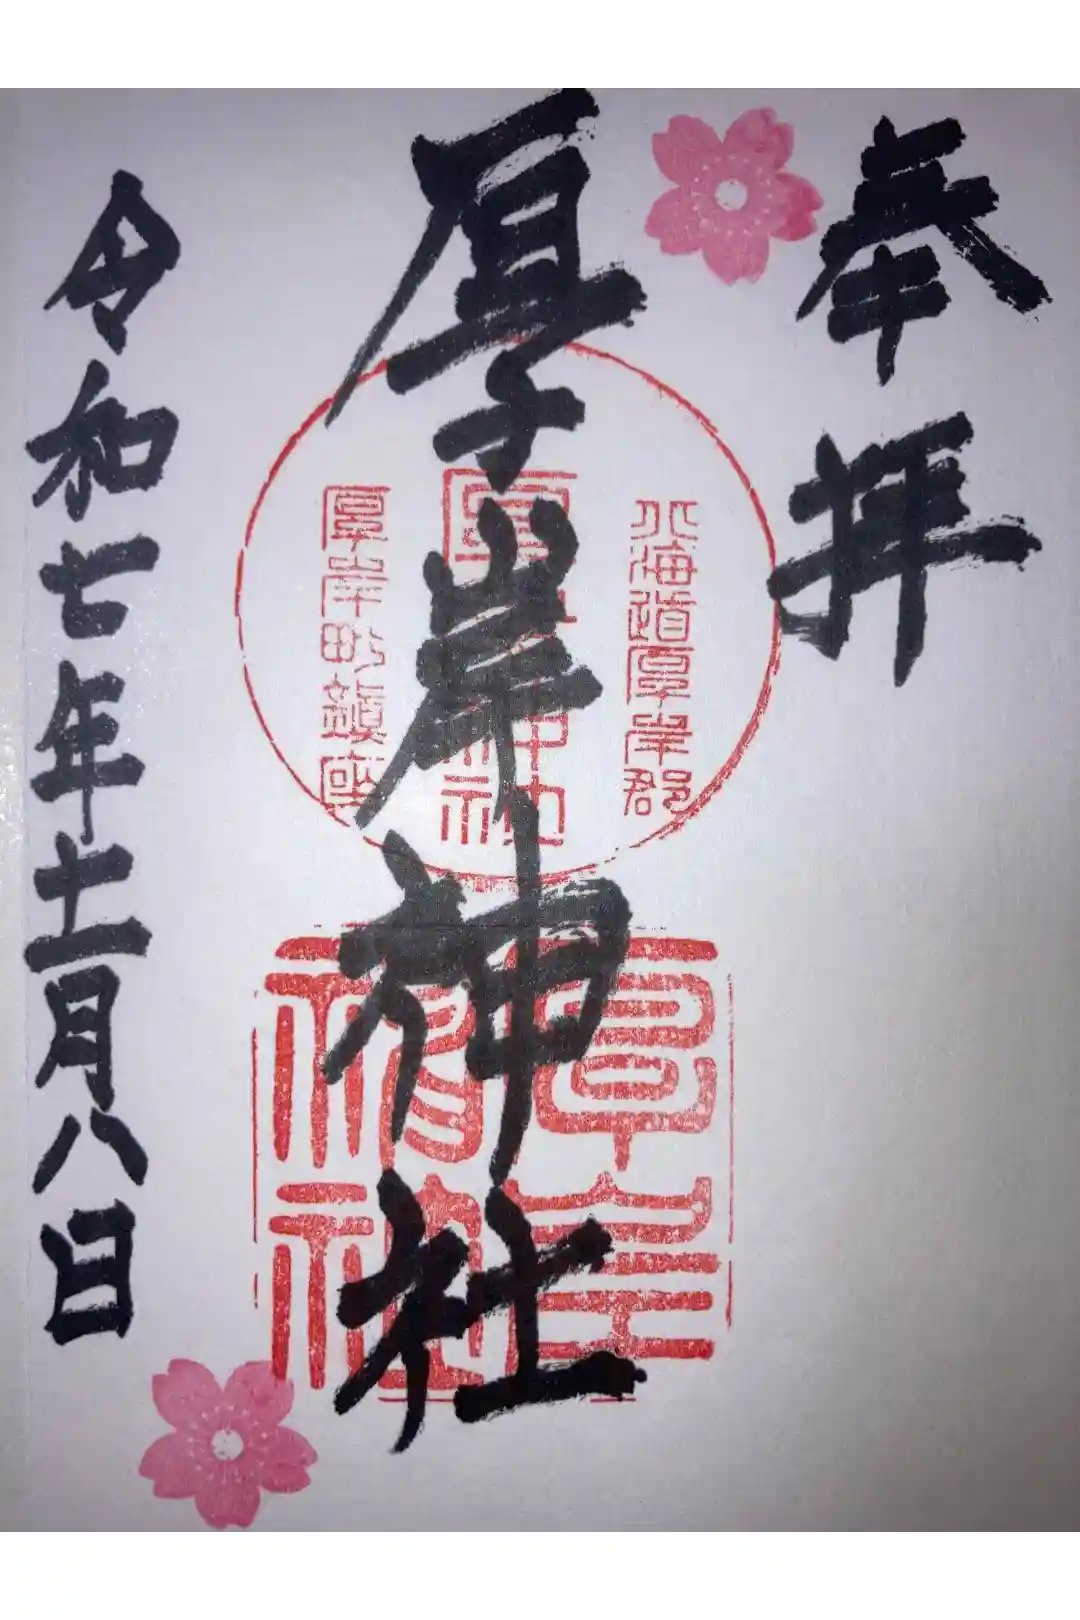 奉拝
北海道厚岸郡
厚岸神社
厚岸神社
厚岸町鎮座
厚岸神社
令和七年十一月八日